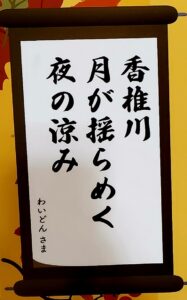 香椎川
月が揺らめく
夜の涼み
わいどん さま